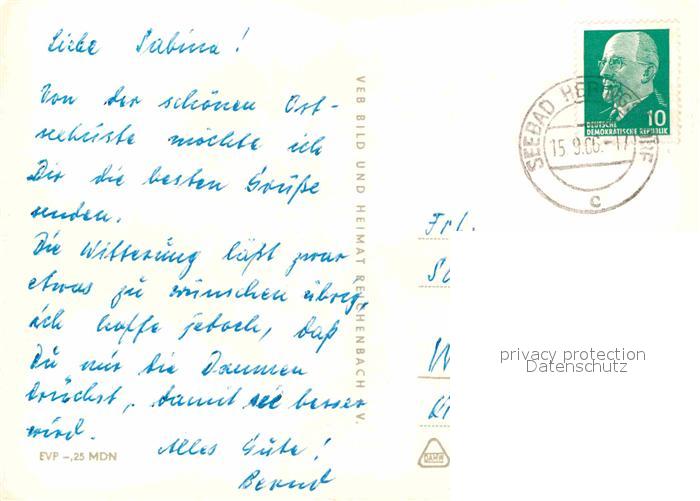 Liebe Sabina!
Von der schönen Ost-
seeküste möchte ich
Dir die besten Grüße
senden.
Die Witterung läßt zwar
etwas zu wünschen übrig,
ich hoffe jedoch, daß
Du mir die Daumen
drückst, damit sie besser
wird.
Alles Gute!
Bernd
EVP -,25 MDN
VEB BILD UND HEIMAT REICHENBACH I. V.
10
DEUTSCHE
DEMOKRATISCHE REPUBLIK
SEEBAD
15.9.66.-17
c
Frl.
DAMW
privacy protection
Datenschutz